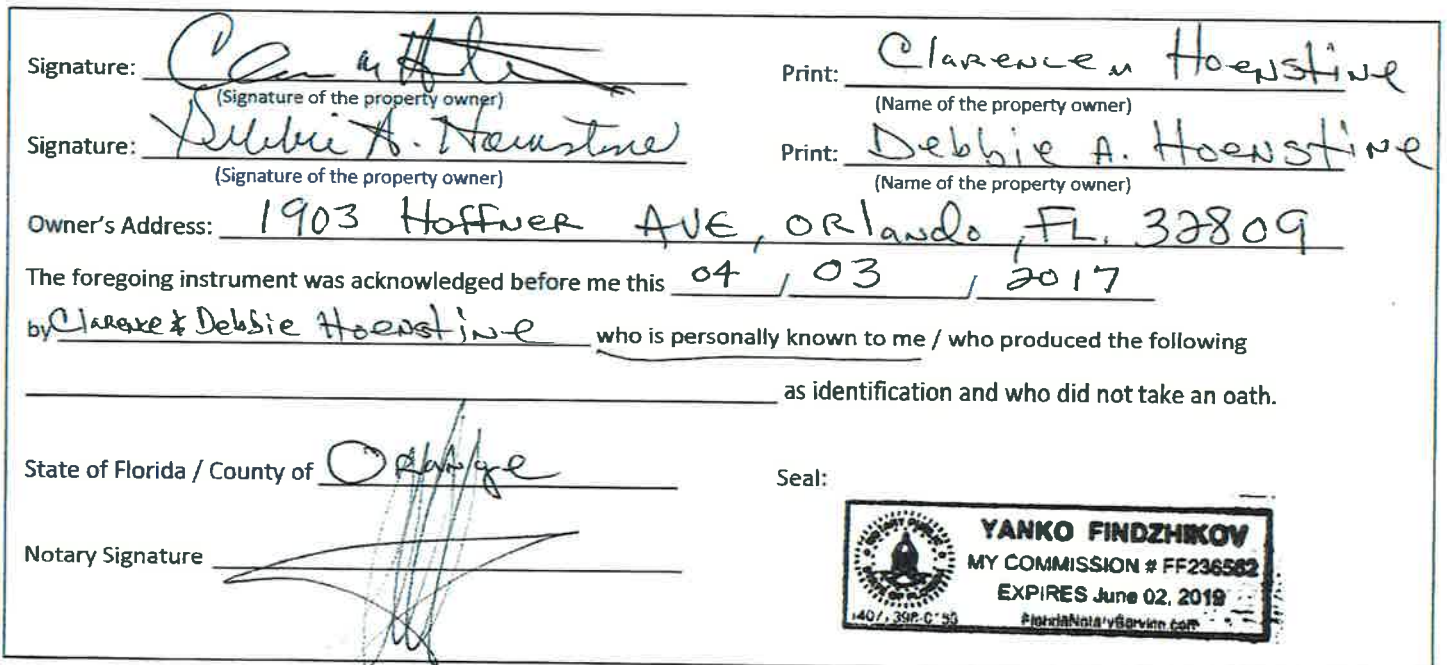 Signature: Print: Clarence M Hoenstine
(Signature of the property owner) (Name of the property owner)
Signature: Debbie A. Hoenstine Print: Debbie A. Hoenstine
(Signature of the property owner) (Name of the property owner)
Owner's Address: 1903 Hoffner AVE, ORlando, FL. 32809
The foregoing instrument was acknowledged before me this 04 / 03 / 2017
by Clarence & Debbie Hoenstine who is personally known to me / who produced the following
as identification and who did not take an oath.
State of Florida / County of Orange Seal:
Notary Signature
NOTARY PUBLIC
STATE OF FLORIDA
YANKO FINDZHIKOV
MY COMMISSION # FF236582
EXPIRES June 02, 2019
FloridaNotaryService.com